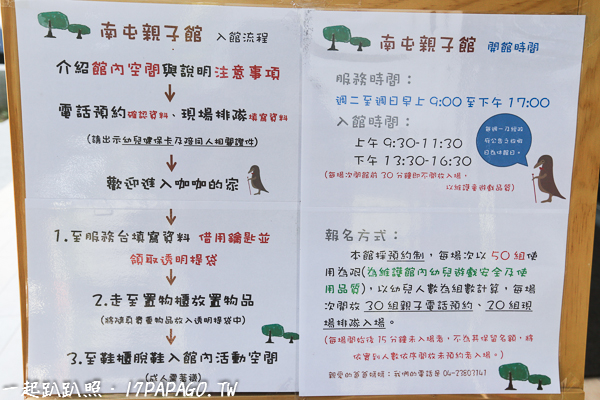 南屯親子館 入館流程
介紹館內空間與說明注意事項
電話預約確認資料、現場排隊填寫資料
(請出示幼兒健保卡及陪同人相關證件)
歡迎進入咖咖的家
1.至服務台填寫資料 借用鑰匙並
領取透明提袋
2.走至置物櫃放置物品
(將隨身貴重物品放入透明提袋中)
3.至鞋櫃脫鞋入館內活動空間
(成人需著襪)
南屯親子館 開館時間
服務時間：
週二至週日早上 9:00 至下午 17:00
入館時間：
上午 9:30-11:30
下午 13:30-16:30
(每場次閉館前 30 分鐘即不開放入場，
以維護遊戲品質)
每週一及經政
府公告之放假
日為休館日。
報名方式：
本館採預約制，每場次以 50 組使
用為限(為維護館內幼兒遊戲安全及使
用品質)，以幼兒人數為組數計算，每場
次開放 30 組親子電話預約、20 組現
場排隊入場。
(每場開放後 15 分鐘未入場者，不為其保留名額，將
依實到人數依序開放未預約者入場。)
親愛的爸爸媽媽：我們的電話是 04-23802141
一起趴趴照．17PAPAGO.TW